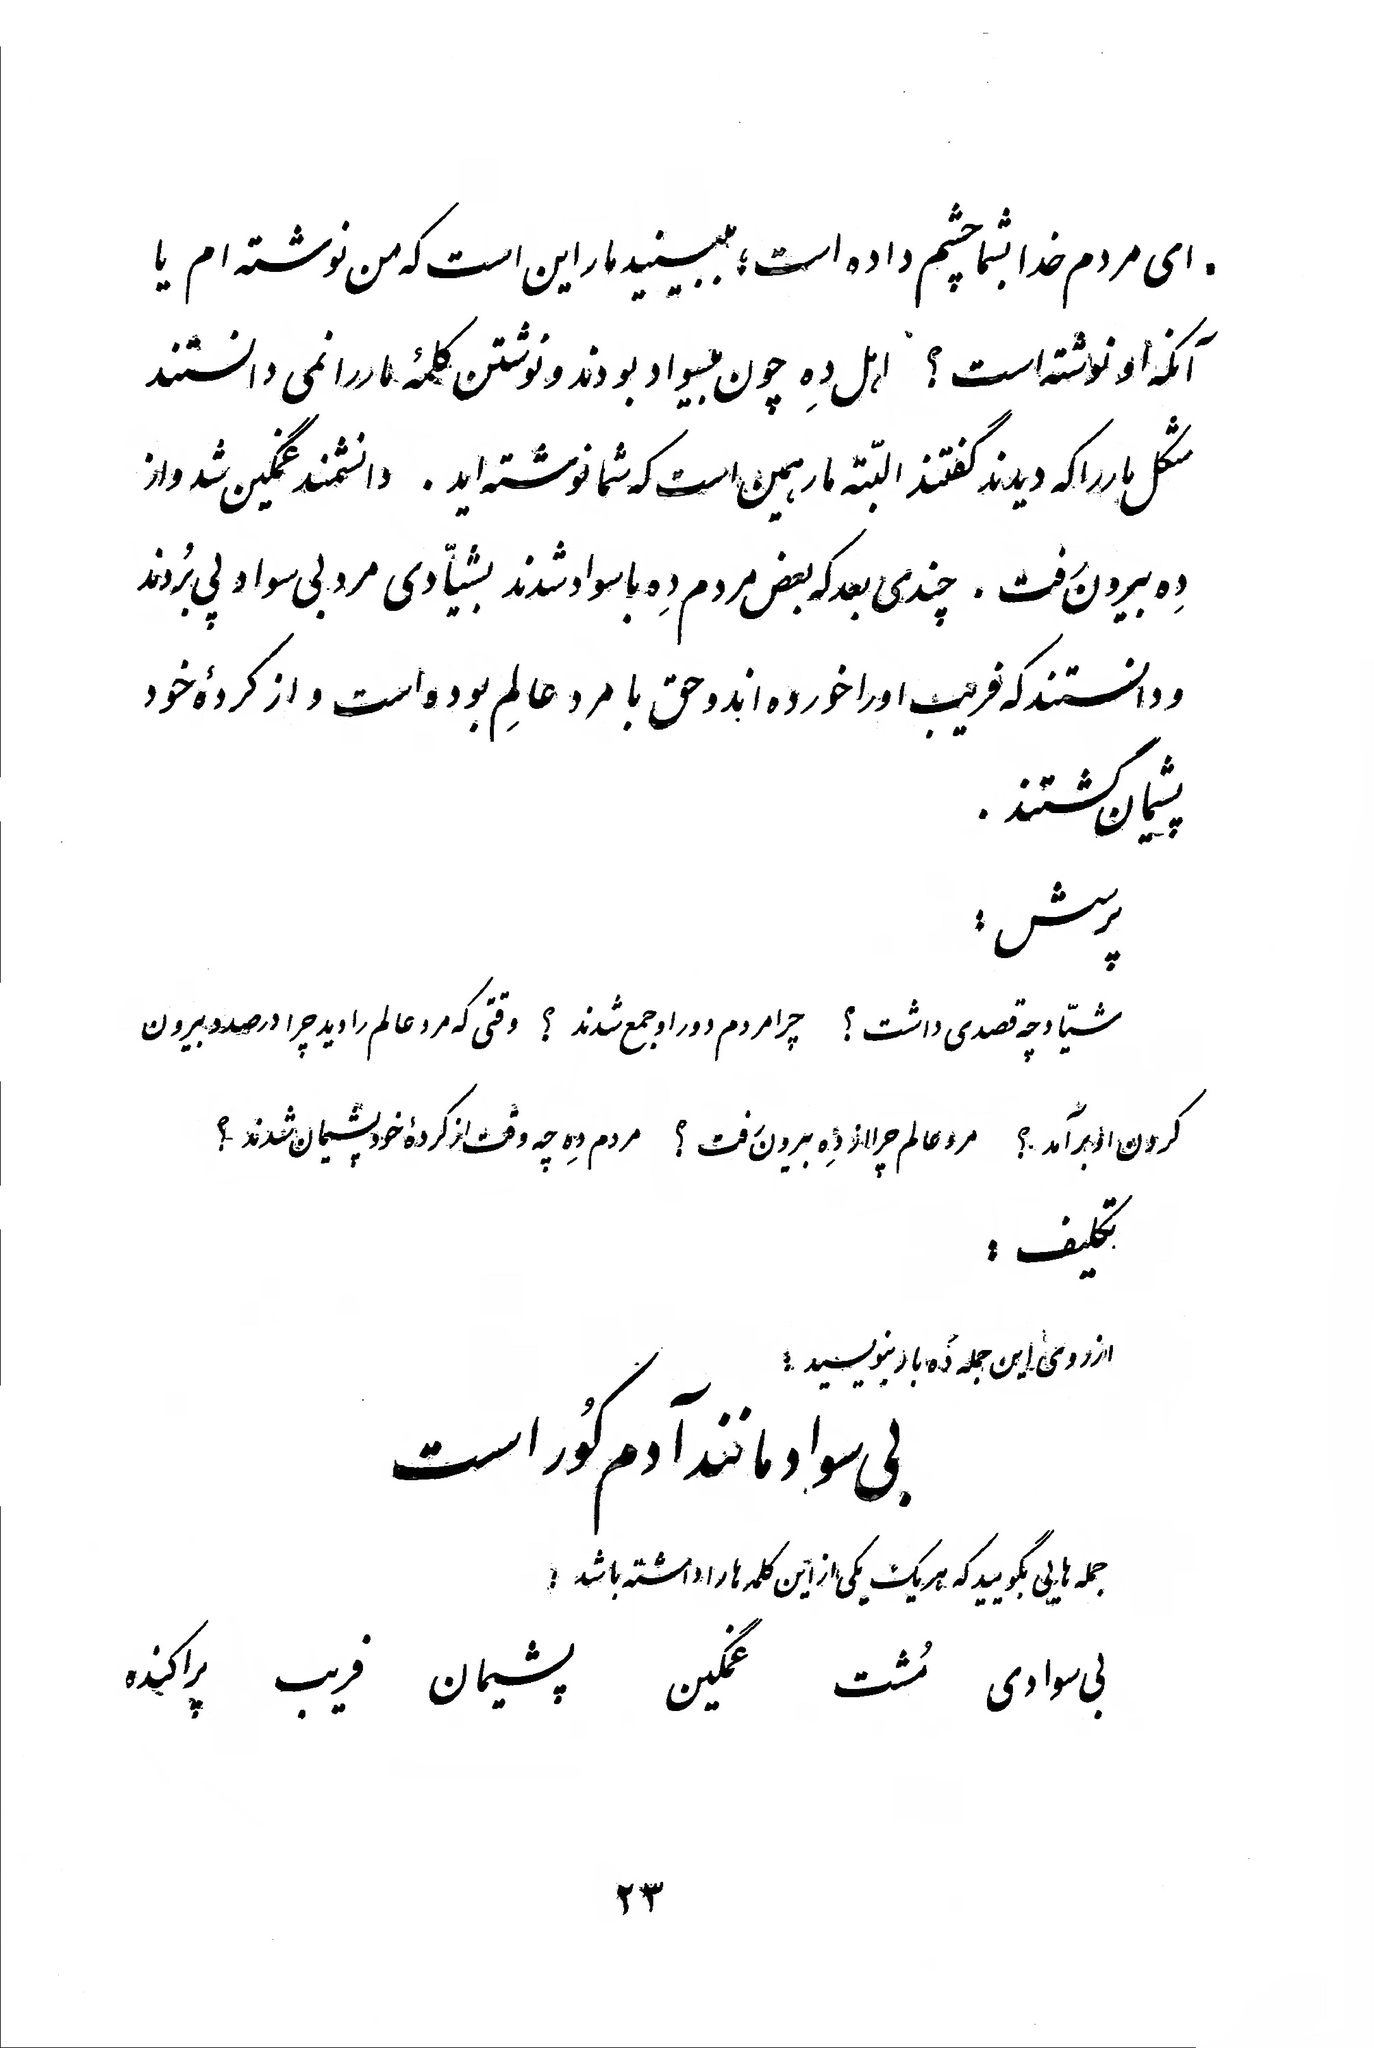 . ای مردم خدا بشما چشم داده است؛ ببینید مار این است که من نوشته ام یا
آنکه او نوشته است ؟ اهل دِه چون بیسواد بودند و نوشتن کلمهٔ مار را نمی دانستند
شکل مار را که دیدند گفتند البتّه مار همین است که شما نوشته اید . دانشمند غمگین شد و از
دِه بیرون رَفت . چندی بعد که بعض مردم دِه با سواد شدند بشیّادی مرد بی سواد پی بُردند
و دانستند که فریب او را خورده اند و حق با مرد عالِم بوده است و از کردهٔ خود
پشیمان گشتند .
پرسش :
شیّاد چه قصدی داشت ؟ چرا مردم دور او جمع شدند ؟ وقتی که مرد عالم را دید چرا در صدد بیرون
کردن او بر آمد ؟ مرد عالم چرا از دِه بیرون رَفت ؟ مردم دِه چه وقت از کردهٔ خود پشیمان شدند ؟
تکلیف :
از روی این جمله دَه بار بنویسید :
بی سواد مانند آدم کُور است
جمله هایی بگویید که هر یک یکی از این کلمه ها را داشته باشد :
بی سوادی مُشت غمگین پشیمان فریب پراکنده
۲۳